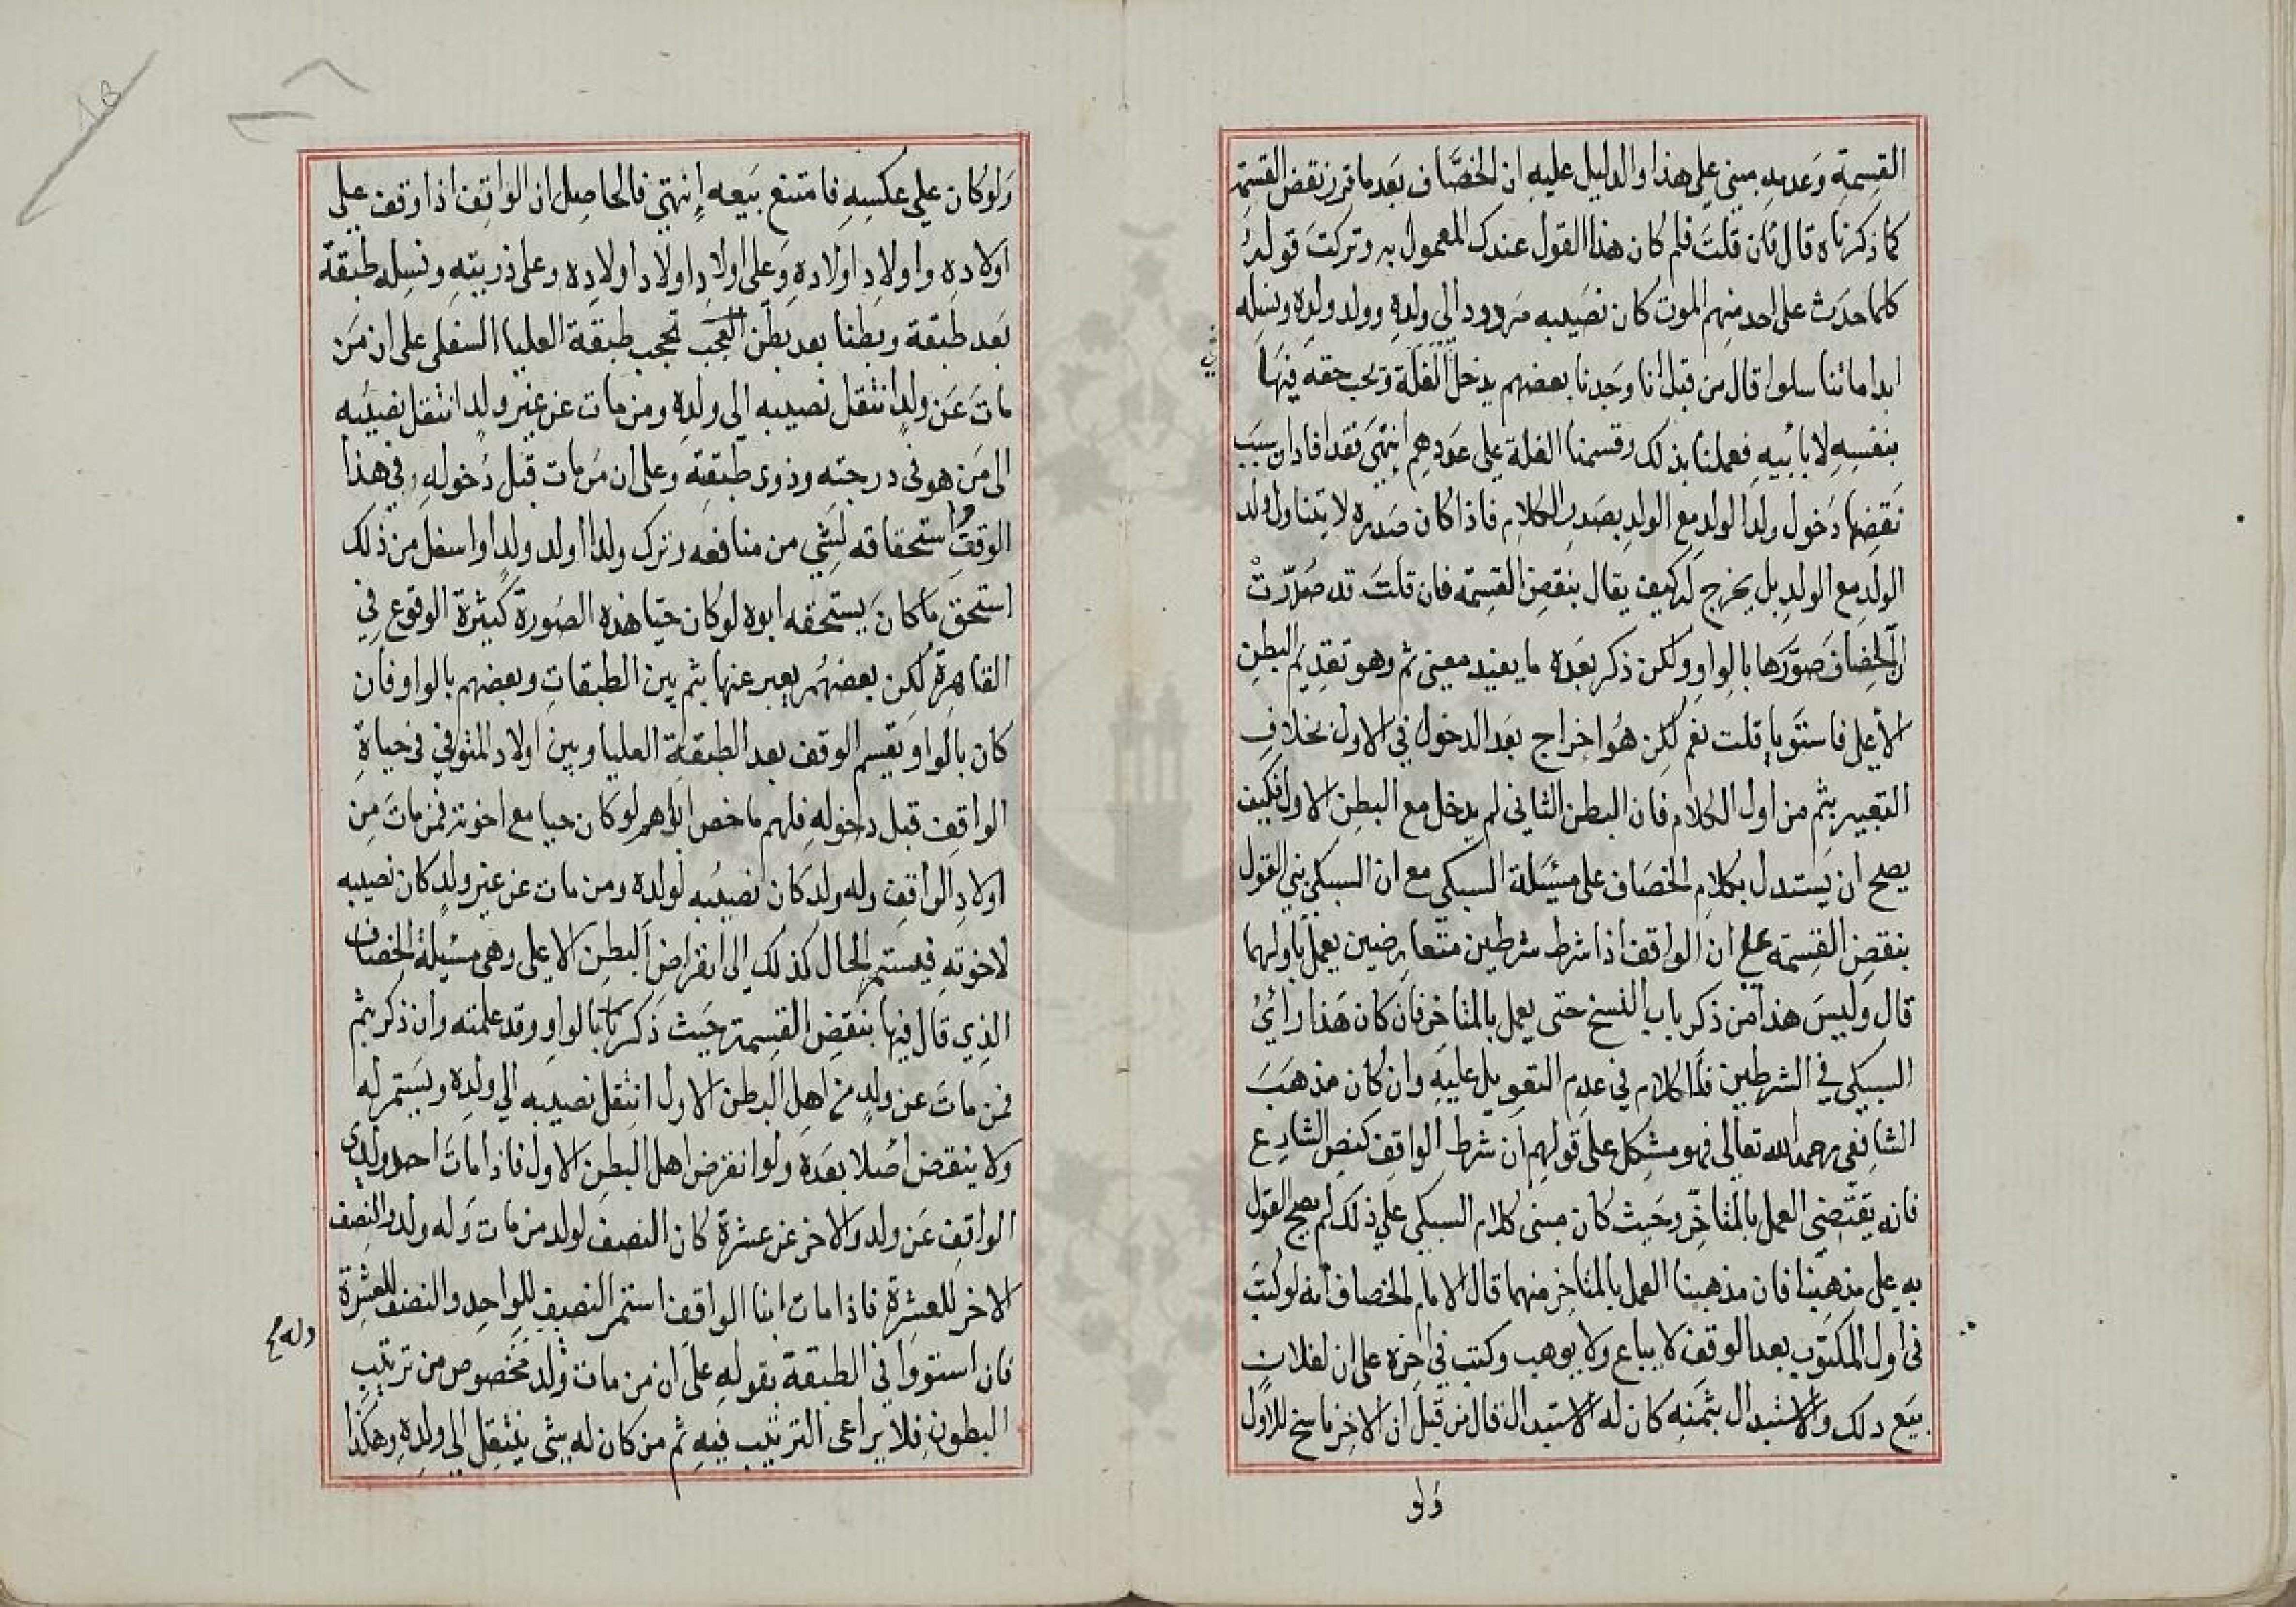 القسمة وعدمه مبني على هذا والدليل عليه ان الخصاف بعد ما قرر نقض القسمة
كما ذكرناه قال فان قلت فلم كان هذا القول عندك المعمول به وتركت قوله
كلما حدث على احد منهم الموت كان نصيبه مردودا الى ولده وولد ولده ونسله
ابدا ما تناسلوا قال من قبل انا وجدنا بعضهم يدخل في الغلة ويجب حقه فيها
بنفسه لا بأبيه فعملنا بذلك وقسمنا الغلة على عددهم انتهى فقد افاد ان سبب
نقضها دخول ولد الولد مع الولد بصدر الكلام فاذا كان صدره لا يتناول ولد
الولد مع الولد بل يخرج له كيف يقال بنقض القسمة فان قلت قد صدرت
ان الخصاف صورها بالواو ولكن ذكر بعده ما يفيد معنى ثم وهو تقديم البطن
الاعلى فاستويا قلت نعم لكن هو اخراج بعد الدخول في الاول بخلاف
التعبير بثم من اول الكلام فان البطن الثاني لم يدخل مع البطن الاول فكيف
يصح ان يستدل بكلام الخصاف على مسئلة السبكي مع ان السبكي بنى القول
بنقض القسمة على ان الواقف اذا شرط شرطين متعارضين يعمل باولهما
قال وليس هذا من ذكر باب النسخ حتى يعمل بالمتاخر فان كان هذا رأى
السبكي في الشرطين فلا كلام في عدم التعويل عليه وان كان مذهب
الشافعي رحمه الله تعالى فهو مشكل على قولهم ان شرط الواقف كنص الشارع
فانه يقتضي العمل بالمتاخر وحيث كان مبنى كلام السبكي على ذلك لم يصح القول
به على مذهبنا فان مذهبنا العمل بالمتاخر منهما قال الامام الخصاف انه لو كتب
في اول المكتوب بعد الوقف لا يباع ولا يوهب وكتب في اخره على ان لفلان
بيع ذلك والاستبدال بثمنه كان له الاستبدال قال من قبل ان الاخر ناسخ للاول
ولو
ولو كان على عكسه فامتنع بيعه انتهى فالحاصل ان الواقف اذا وقف على
اولاده واولاد اولاده وعلى اولاد اولاد اولاده وعلى ذريته ونسله طبقة
بعد طبقة وبطنا بعد بطن تحجب طبقة العليا السفلى على ان من
مات عن ولد انتقل نصيبه الى ولده ومن مات عن غير ولد انتقل نصيبه
الى من هو في درجته وذوي طبقته وعلى ان من مات قبل دخوله في هذا
الوقف واستحقاقه لشي من منافعه وترك ولدا او ولد ولد او اسفل من ذلك
استحق ما كان يستحقه ابوه لو كان حيا هذه الصورة كثيرة الوقوع في
القاهرة لكن بعضهم يعبر عنها بثم بين الطبقات وبعضهم بالواو فان
كان بالواو يقسم الوقف بعد الطبقة العليا وبين اولاد المتوفي في حياة
الواقف قبل دخوله فلهم ما خص اباهم لو كان حيا مع اخوته فمن مات من
اولاد الواقف وله ولد كان نصيبه لولده ومن مات عن غير ولد كان نصيبه
لاخوته فيستمر الحال كذلك الى انقراض البطن الاعلى وهي مسئلة الخصاف
الذي قال فيها بنقض القسمة حيث ذكر بالواو وقد علمته وان ذكر بثم
فمن مات عن ولد من اهل البطن الاول انتقل نصيبه الى ولده ويستمر له
ولا ينقض اصلا بعده ولو انقرض اهل البطن الاول فاذا مات احد ولدى
الواقف عن ولد والاخر عن عشرة كان النصف لولد من مات وله ولد والنصف
الاخر للعشرة فاذا مات ابنا الواقف استمر النصف للواحد والنصف للعشرة
فان استووا في الطبقة بقوله على ان من مات وله ولد مخصوص من ترتيب
البطون فلا يراعى الترتيب فيه ثم من كان له شي ينتقل الى ولده وهكذا